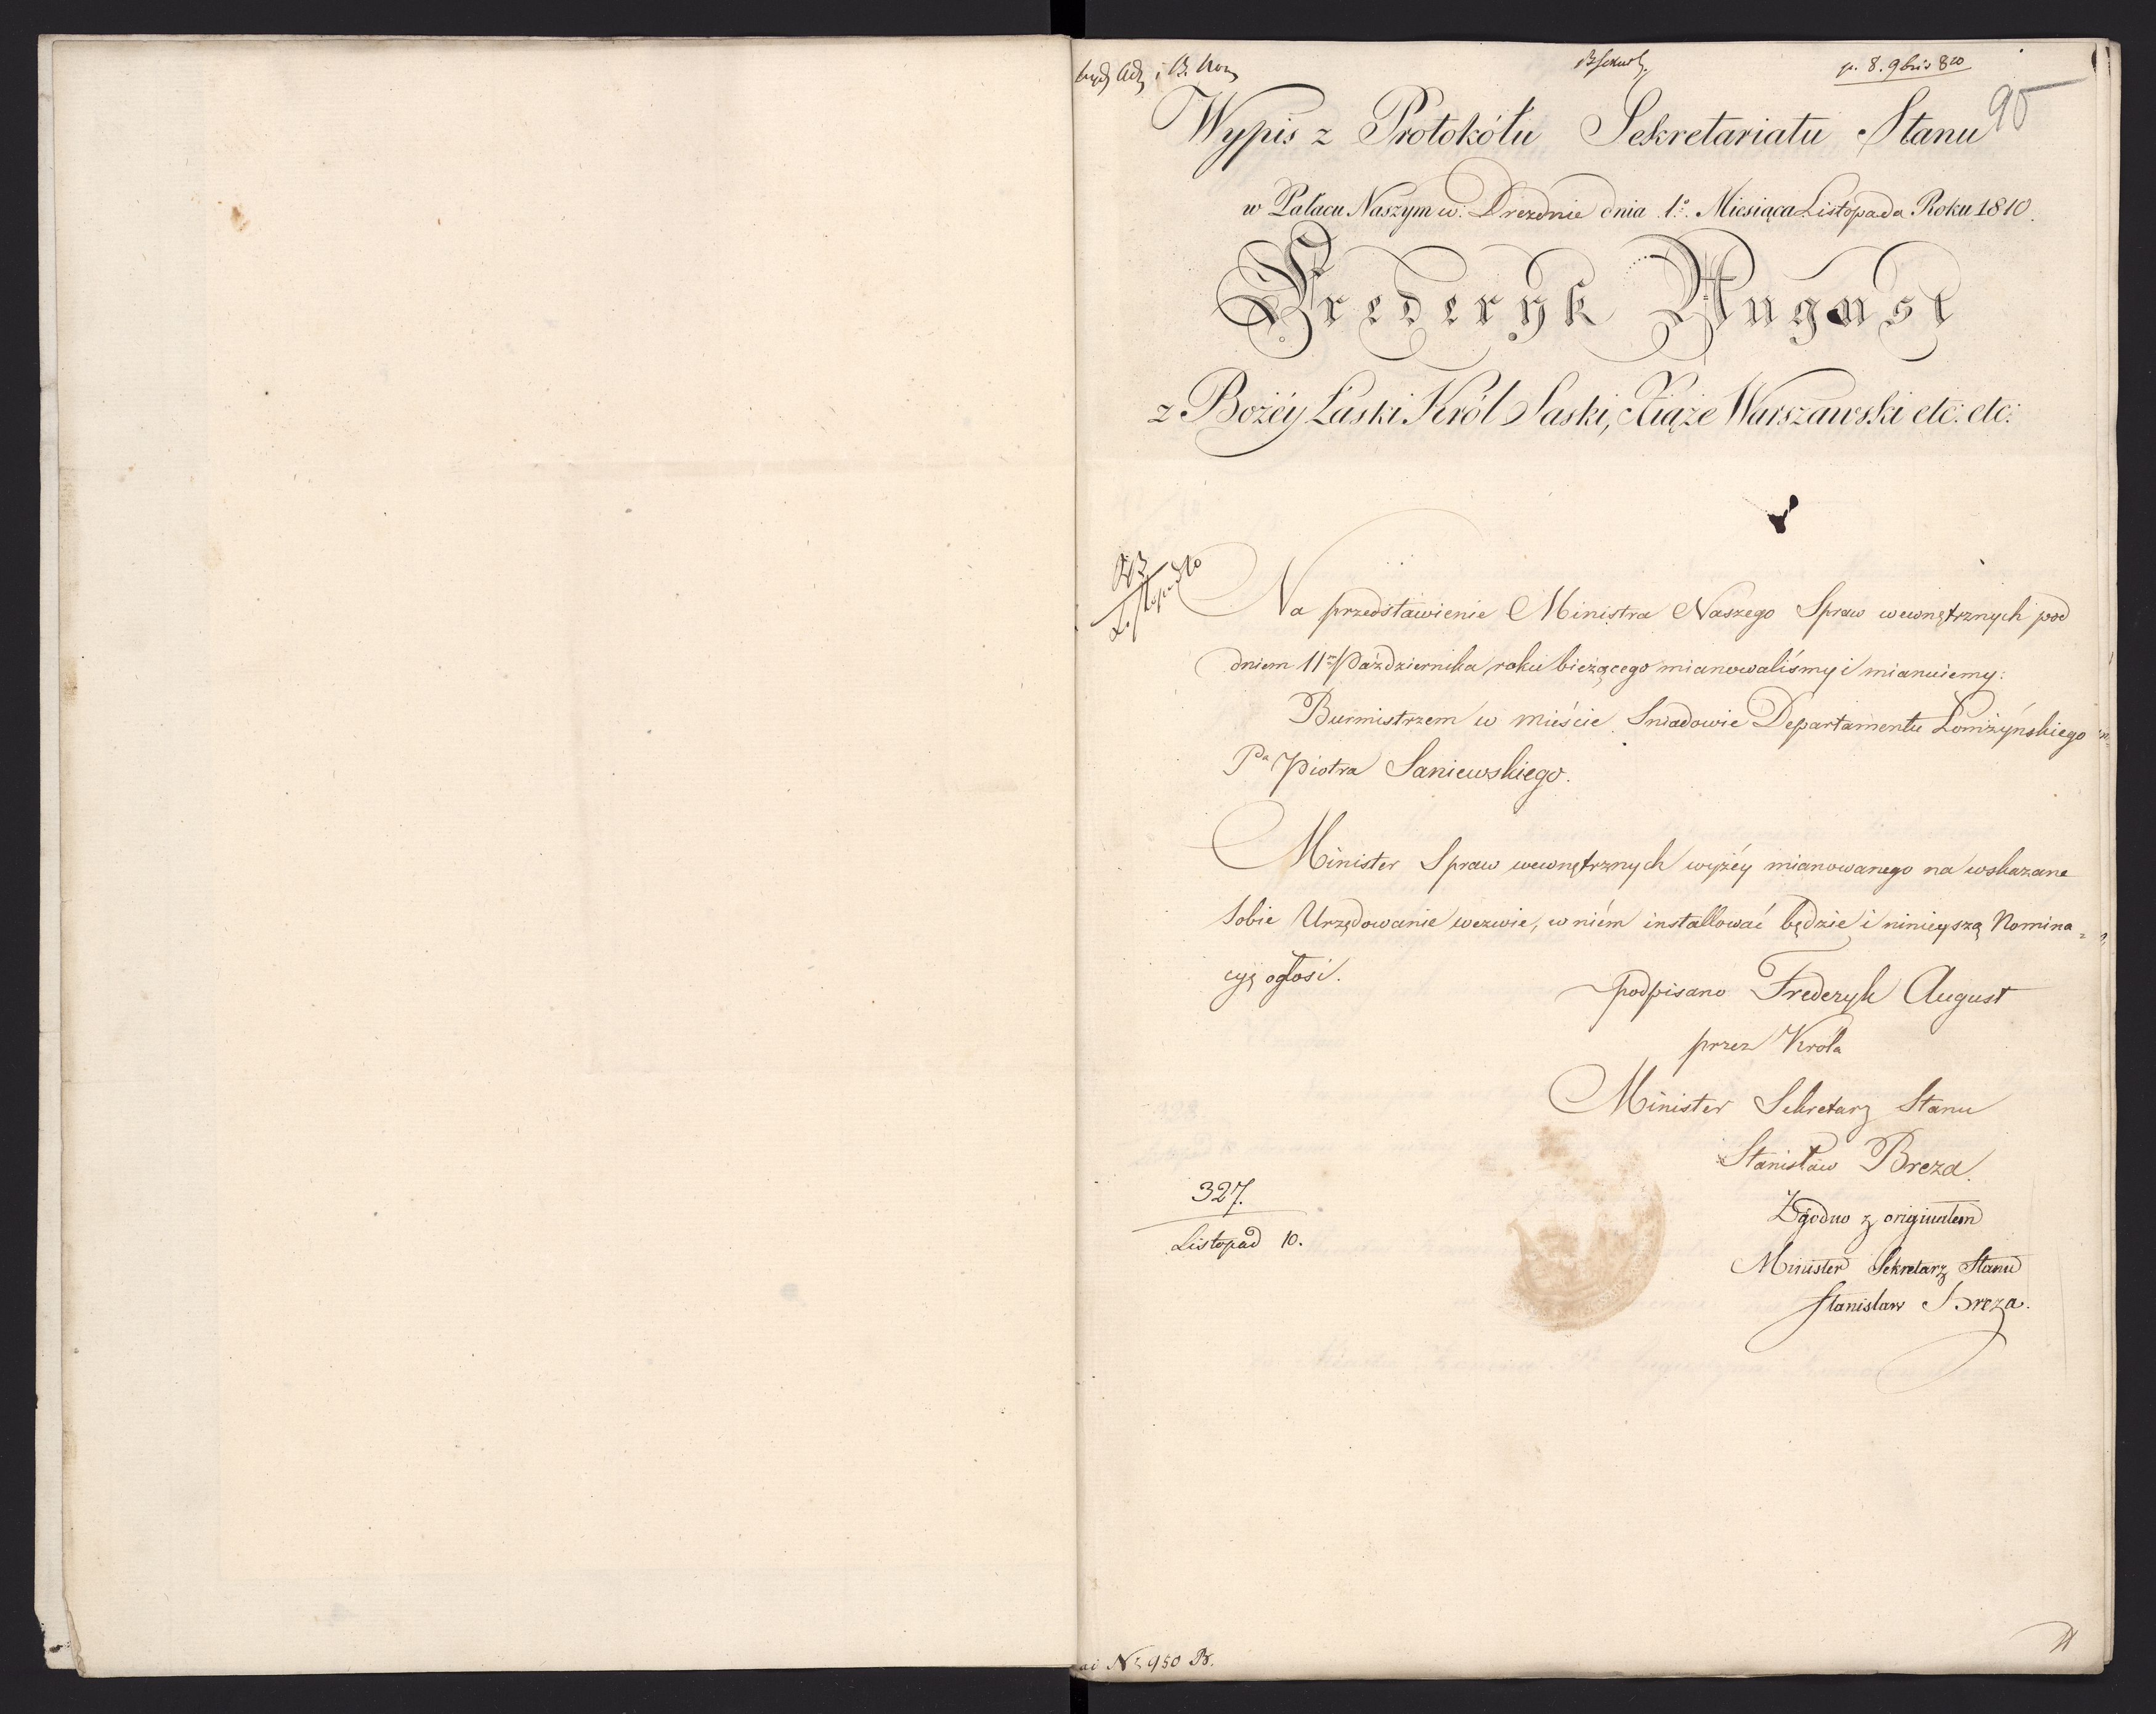 p. 8. 9bris 810
95
Wypis z Protokółu Sekretariatu Stanu
w Pałacu Naszym w: Dreznie dnia 1º. Miesiąca Listopada Roku 1810.
Frederyk August
z Bożéy Łaski Król Saski, Xiąże Warszawski etc: etc:
Na przedstawienie Ministra Naszego Spraw wewnętrznych pod
dniem 11m Października roku bieżącego mianowaliśmy i mianuiemy:
Burmistrzem w mieście Sniadowie Departamentu Łomżyńskiego
Pa Piotra Saniewskiego.
Minister Spraw wewnętrznych wyżéy mianowanego na wskazane
sobie Urzędowanie wezwie, w niém installować będzie i ninieyszą Nomina=
cyą ogłosi.
podpisano Frederyk August
przez Króla
Minister Sekretarz Stanu
Stanisław Breza.
327.
Listopad 10.
Zgodno z originałem
Minister Sekretarz Stanu
Stanisław Breza.
Nº 950